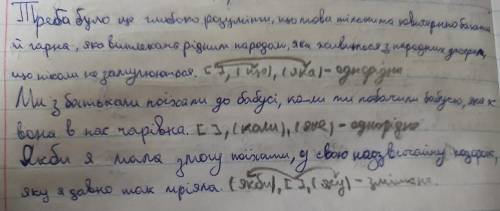 Треба було ще глибоко розуміти, що мова тільки та ювілярно багата
й гарна, яка виплекана рідним народом, яка живиться з народних джерел,
що ніколи не замулюються. [ ], (що), (яка) – однорідна
Ми з батьками поїхали до бабусі, коли ми побачили бабусю, яка ж
вона в нас чарівна. [ ], (коли), (яка) – однорідна
Якби я мала змогу поїхати, у свою надзвичайну подорож,
яку я давно так мріяла. (якби), [ ], (яку) – змішана.